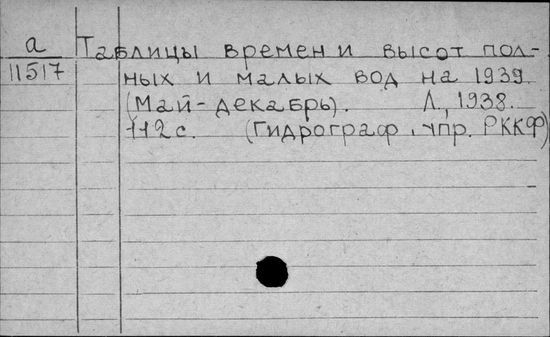 а Таблицы времен и высот пол-
11517 ных и малых вод на 1939.
(Май-декабрь). Л., 1938.
112 с. (Гидрограф. упр. РККФ)